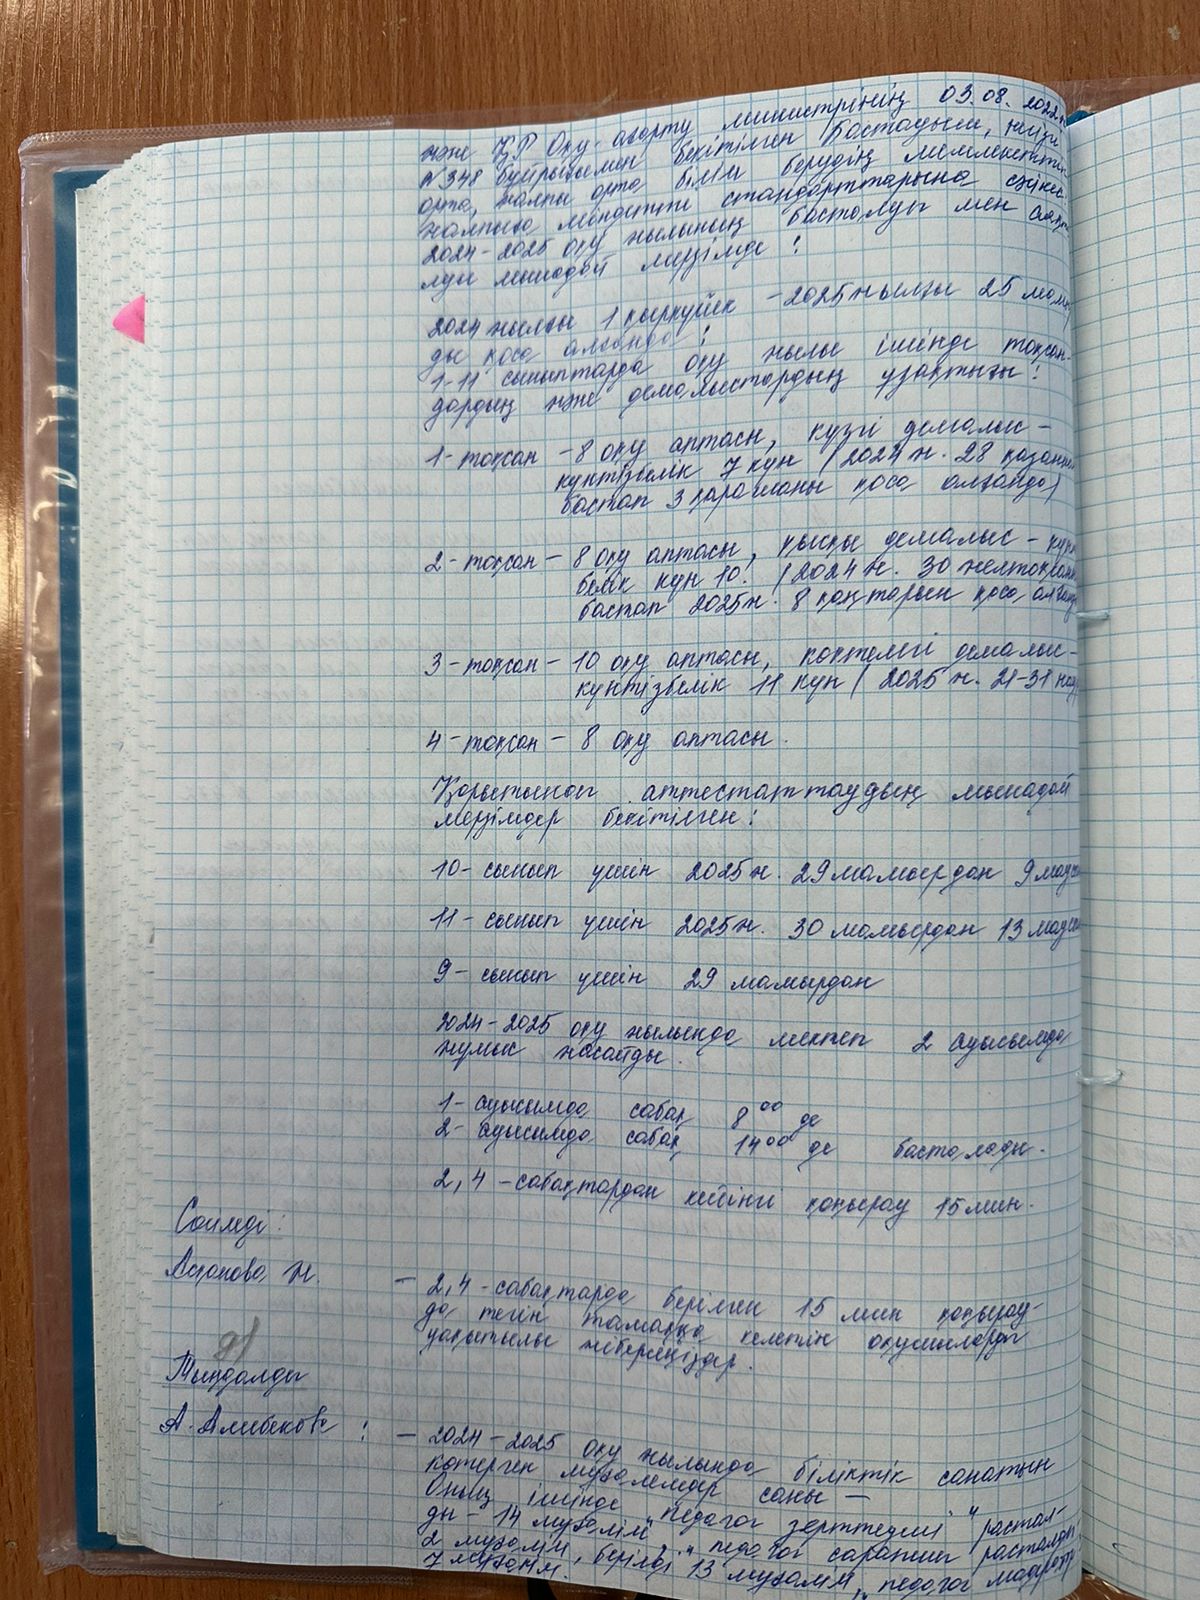 және ҚР Оқу-ағарту министрінің 03.08.2022ж
№348 бұйрығымен бекітілген бастауыш, негізгі
орта, жалпы орта білім берудің мемлекеттік
жалпыға міндетті стандарттарына сәйкес
2024-2025 оқу жылының басталуы мен аяқта
луы мынадай мерзімде:
2024 жылғы 1 қыркүйек - 2025 жылғы 25 мамыр
ды қоса алғанда:
1-11 сыныптарда оқу жылы ішінде тоқсан-
дардың және демалыстардың ұзақтығы:
1-тоқсан - 8 оқу аптасы, күзгі демалыс -
күнтізбелік 7 күн (2024 ж. 28 қазаннан
бастап 3 қарашаны қоса алғанда)
2-тоқсан - 8 оқу аптасы, қысқы демалыс - күнтіз
белік күн 10. (2024 ж. 30 желтоқсаннан
бастап 2025ж. 8 қаңтарын қоса алғанда
3-тоқсан - 10 оқу аптасы, көктемгі демалыс -
күнтізбелік 11 күн (2025 ж. 21-31 нау
4-тоқсан - 8 оқу аптасы.
Қорытынды аттестаттаудың мынадай
мерзімдер бекітілген:
10-сынып үшін 2025ж. 29 мамырдан 9 маусы
11-сынып үшін 2025ж. 30 мамырдан 13 маусы
9-сынып үшін 29 мамырдан
2024-2025 оқу жылында мектеп 2 ауысымда
жұмыс жасайды.
1-ауысымда сабақ 8⁰⁰ де
2-ауысымда сабақ 14⁰⁰ де басталады.
2,4-сабақтардан кейінгі қоңырау 15 мин.
Сөйледі:
Асанова Н. - 2,4-сабақтарда берілген 15 мин қоңырау-
да тегін тамаққа келетін оқушыларды
уақытылы жібереңіздер.
Тыңдалды
А. Алибекова: - 2024-2025 оқу жылында біліктік санатын
көтерген мұғалімдер саны -
Оның ішінде "педагог зерттеуші" растал-
ды - 14 мұғалім, "педагог сарапшы расталды
2 мұғалім, берілді 13 мұғалім, "педагог модератор
7 мұғалім.